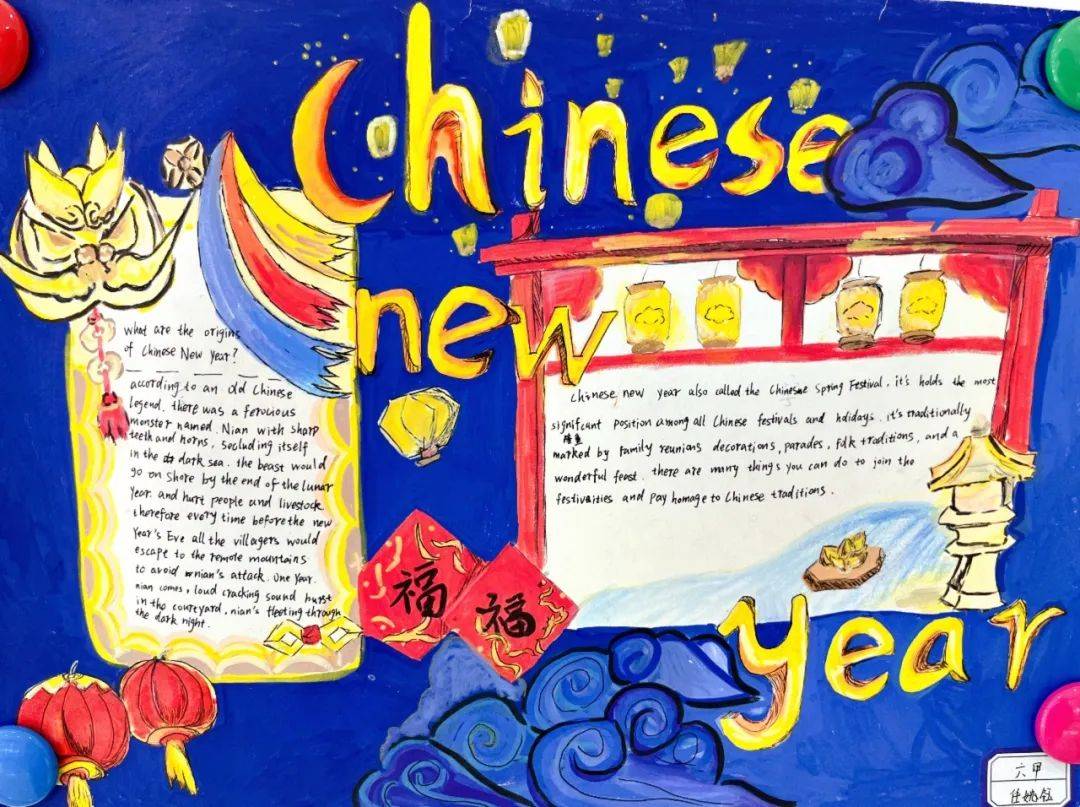 Chinese
new
what are the origins
of Chinese New Year?
according to an old Chinese
legend. there was a ferocious
monster named. Nian with sharp
teeth and horns, secluding itself
in the dark sea. the beast would
go on shore by the end of the lunar
year. and hurt people and livestock.
therefore every time before the new
Year's Eve all the villagers would
escape to the remote mountains
to avoid nian's attack. One year.
nian comes, loud cracking sound burst
in the courtyard, nian's fleeting through
the dark night.
Chinese new year also called the Chinese Spring Festival. it's holds the most
significant position among all Chinese festivals and holidays. it's traditionally
隆重
marked by family reunions decorations, parades, folk traditions, and a
wonderful feast. there are many things you can do to join the
festivities and pay homage to Chinese traditions.
福
福
year
六甲
任姚钰